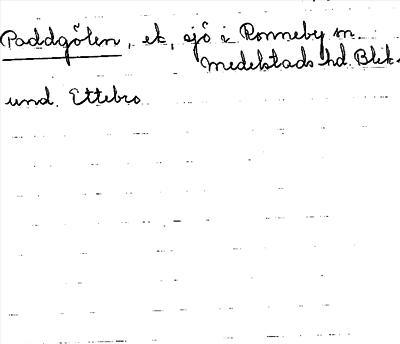 Paddgölen, ek, sjö i Ronneby sn.
Medelstads hd. Blek.
und. Ettebro